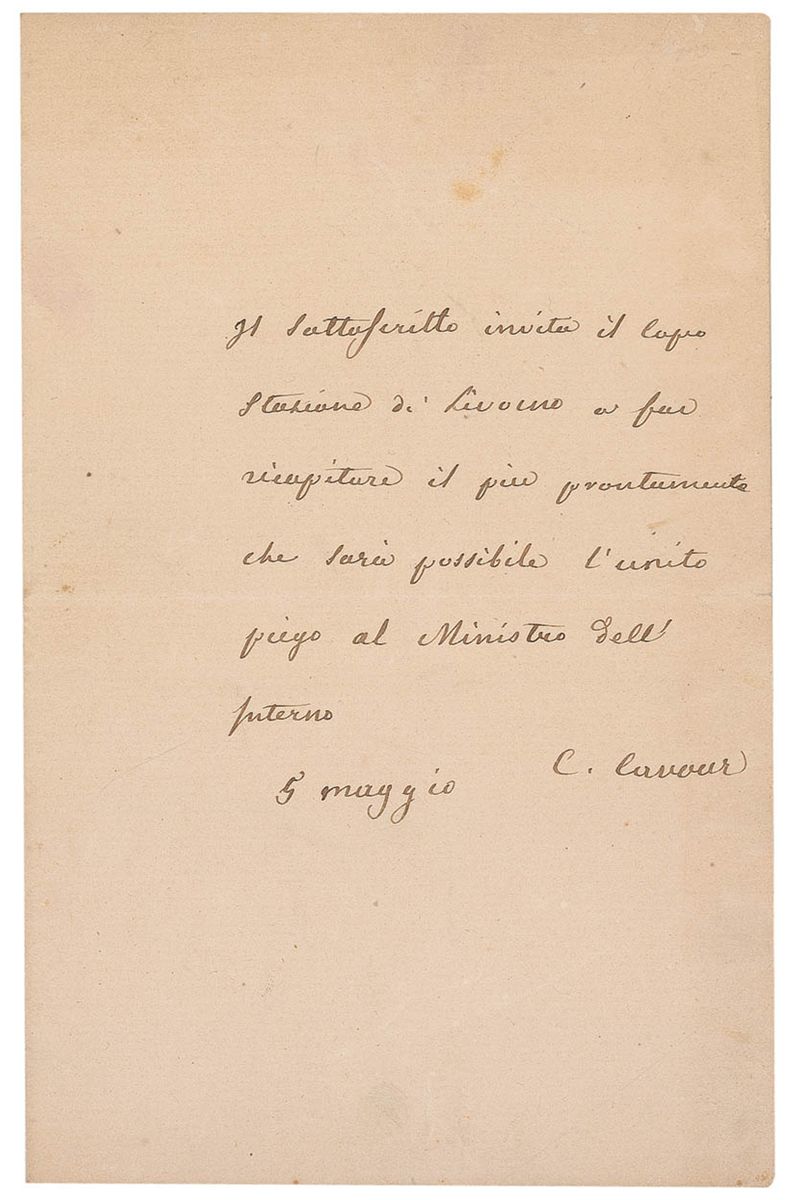 Il Sottoscritto invita il Capo
Stazione di Livorno a far
ricapitare il più prontamente
che sarà possibile l'unito
piego al Ministro dell'
Interno
C. Cavour
5 maggio